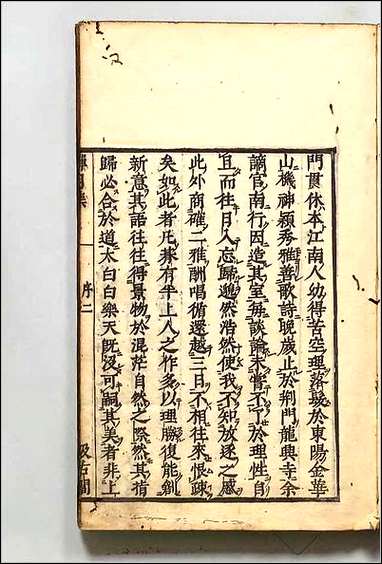 門貫休本江南人幼得苦空理落髮於東陽金華
山機神穎秀雅善歌詩晚歲止於荆門龍興寺余
謫官南行因造其室每談論未嘗不了於理性自
旦而往日入忘歸邈然浩然使我不知放逐之慼
此外商確二雅酬唱循還越三日不相往來恨疎
矣如此者凡朞有半上人之作多以理勝復能創
新意其語往往得景物於混茫自然之際然其旨
歸必合於道太白白樂天既沒可嗣其美者非上
禪月集
序二
汲古閣